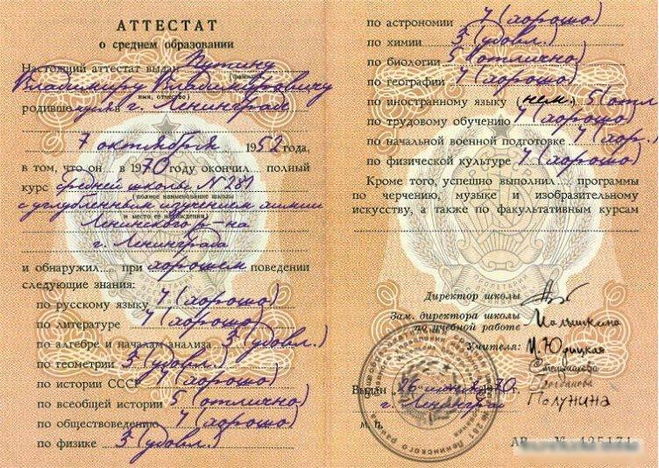 АТТЕСТАТ
о среднем образовании
Настоящий аттестат выдан Путину
Владимиру Владимировичу
имя, отчество)
родившемуся в г. Ленинграде
7 октября 1952 года,
в том, что он в 1970 году окончил полный
курс средней школы № 281
(полное наименование школы
с углубленным изучением химии
и место ее нахождения)
Ленинского р-на
г. Ленинграда
и обнаружил при хорошем поведении
следующие знания:
по русскому языку 4 (хорошо)
по литературе 4 (хорошо)
по алгебре и началам анализа 3 (удовл.)
по геометрии 3 (удовл.)
по истории СССР 4 (хорошо)
по всеобщей истории 5 (отлично)
по обществоведению 4 (хорошо)
по физике 3 (удовл.)
по астрономии 4 (хорошо)
по химии 3 (удовл.)
по биологии 5 (отлично)
по географии 4 (хорошо)
по иностранному языку (нем.) 5 (отл
по трудовому обучению 4 (хорошо)
по начальной военной подготовке 4 (хор.)
по физической культуре 4 (хорошо)
Кроме того, успешно выполнил программы
по черчению, музыке и изобразительному
искусству, а также по факультативным курсам
Директор школы
Зам. директора школы
по учебной работе
Учителя:
Полунина
Выдан 26 июня 1970 г.
г. Ленинград
М. п.